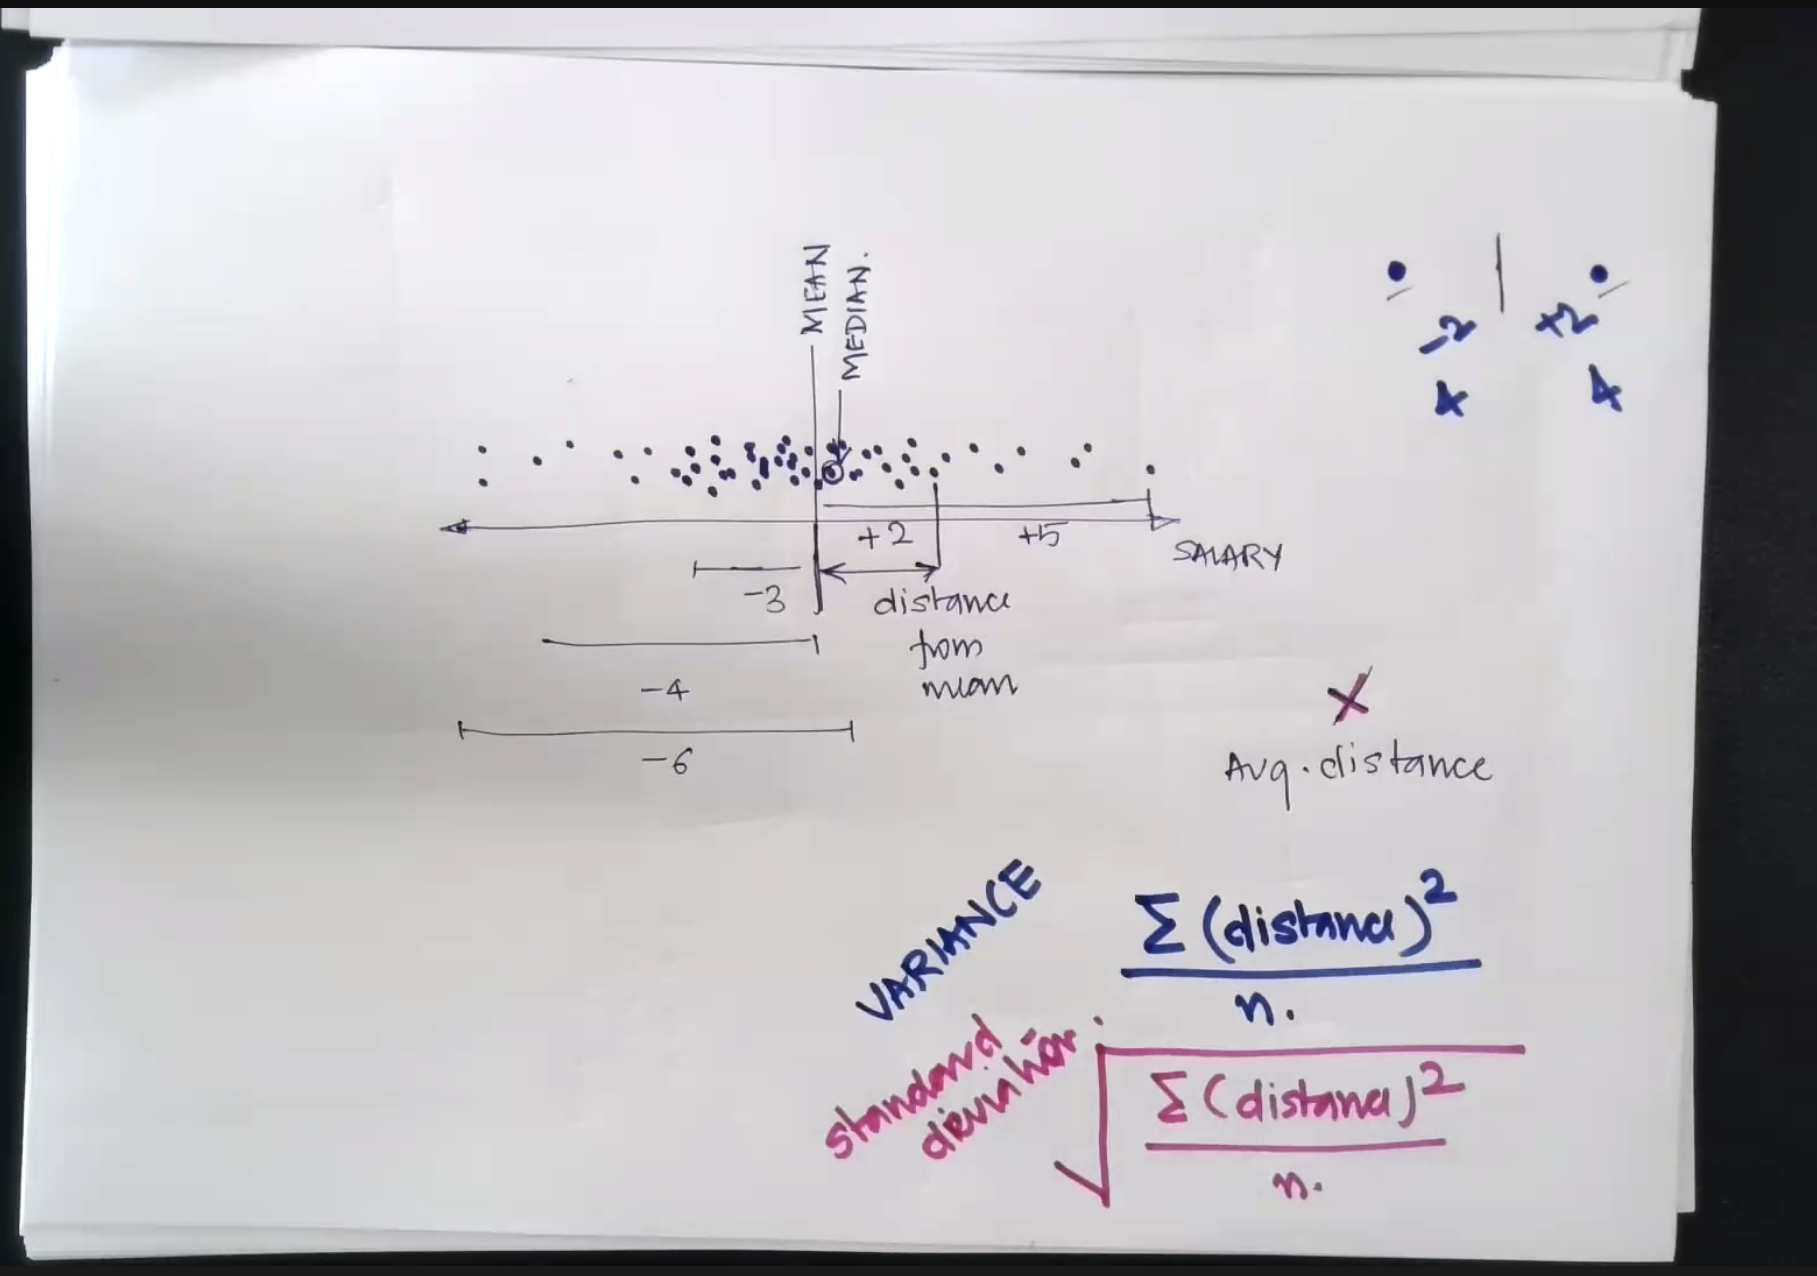 MEAN
MEDIAN.
-2 +2
4 4
+2 +5
SALARY
-3
distance
from
mean
-4
-6
X
Avg. distance
VARIANCE
Σ (distance)²
n.
standard
deviation
√
Σ (distance)²
n.